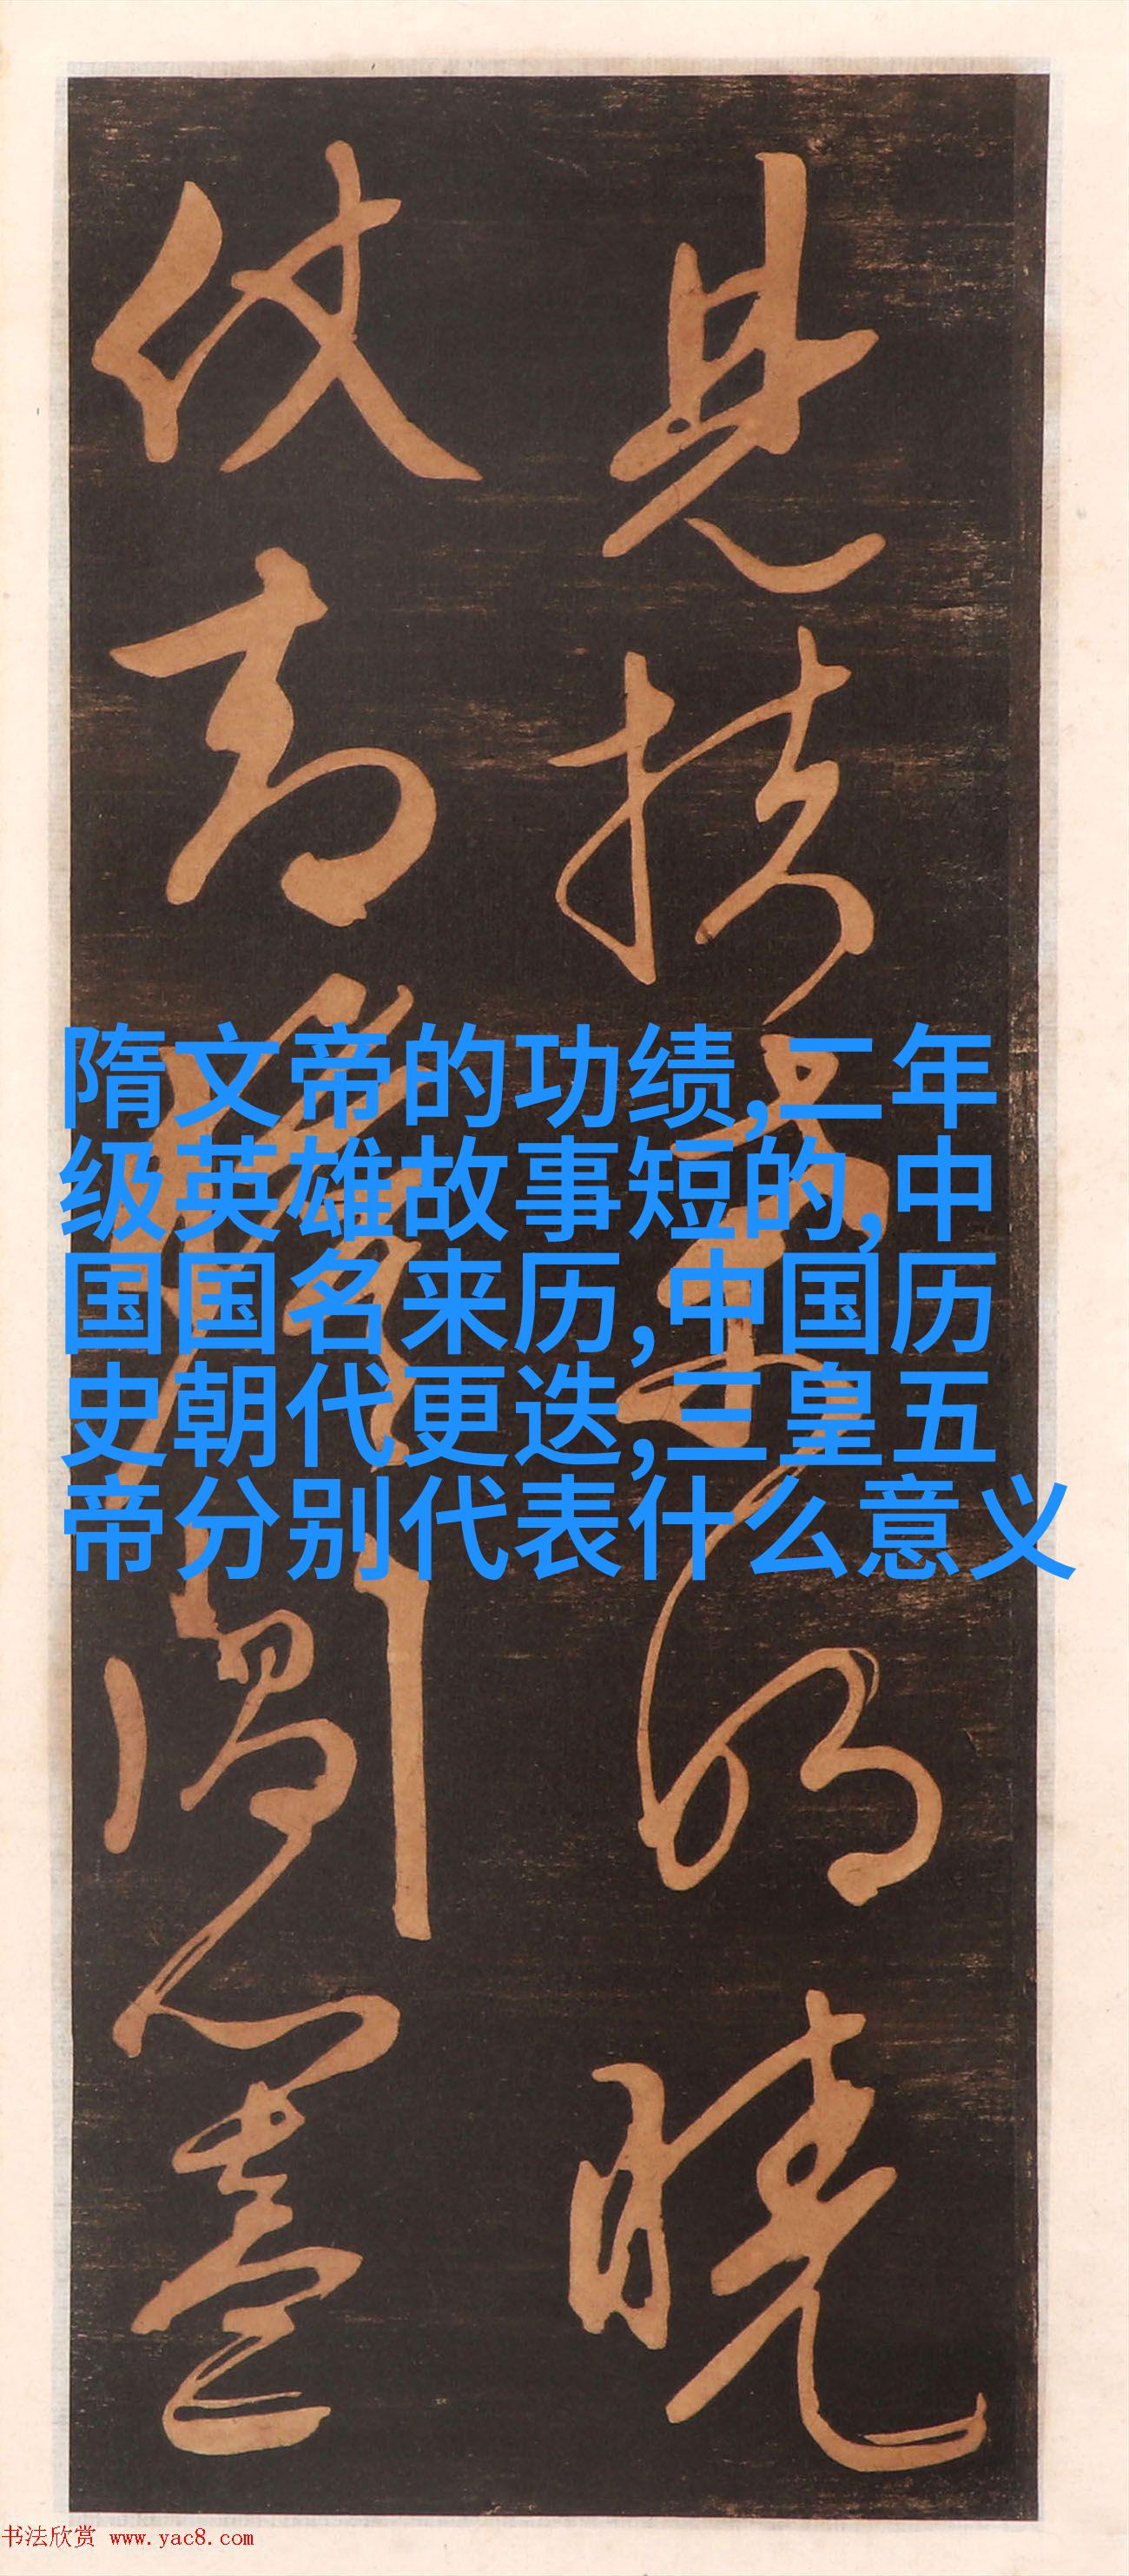 见扶桑晓
仗高
盖
隋文帝的功绩,二年
级英雄故事短的,中
国国名来历,中国历
史朝代更迭,三皇五
帝分别代表什么意义
书法欣赏 www.yac8.com